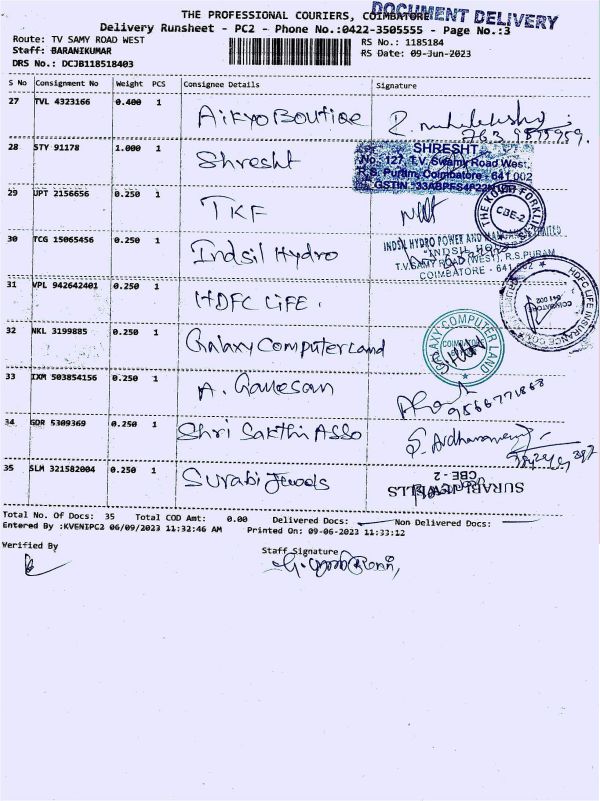 THE PROFESSIONAL COURIERS, COIMBATORE
DOCUMENT DELIVERY
Delivery Runsheet - PC2 - Phone No.:0422-3505555 - Page No.:3
Route: TV SAMY ROAD WEST
RS No.: 1185184
Staff: BARANIKUMAR
RS Date: 09-Jun-2023
DRS No.: DCJB118518403
S No Consignment No Weight PCS Consignee Details Signature
27 TVL 4323166 0.400 1 Aikyo Boutiqe
28 STY 91178 1.000 1 Shresht
SHRESHT
No. 127, T.V. Swamy Road West,
R.S. Puram, Coimbatore - 641 002
29 UPT 2156656 0.250 1 TKF
CBE-2
30 TCG 15065456 0.250 1 Indsil Hydro
INDSIL HYDRO POWER AND LIMITED
T.V.SAMY (WEST), R.S.PURAM
COIMBATORE - 641
31 VPL 942642401 0.250 1 HDFC LiFE.
HDFC LIFE INSURANCE
COIMBATORE
641 002
32 NKL 3199885 0.250 1 Galaxy Computer Land
GALAXY COMPUTER LAND
33 IXM 503854156 0.250 1 A. Ganesan
9566771868
34 GDR 5309369 0.250 1 Shri Sakthi Asso
35 SLM 321582004 0.250 1 Surabi Jewels
SURABI
CBE - 2
Total No. Of Docs: 35 Total COD Amt: 0.00 Delivered Docs: Non Delivered Docs:
Entered By :KVENIPC2 06/09/2023 11:32:46 AM Printed On: 09-06-2023 11:33:12
Verified By
Staff Signature